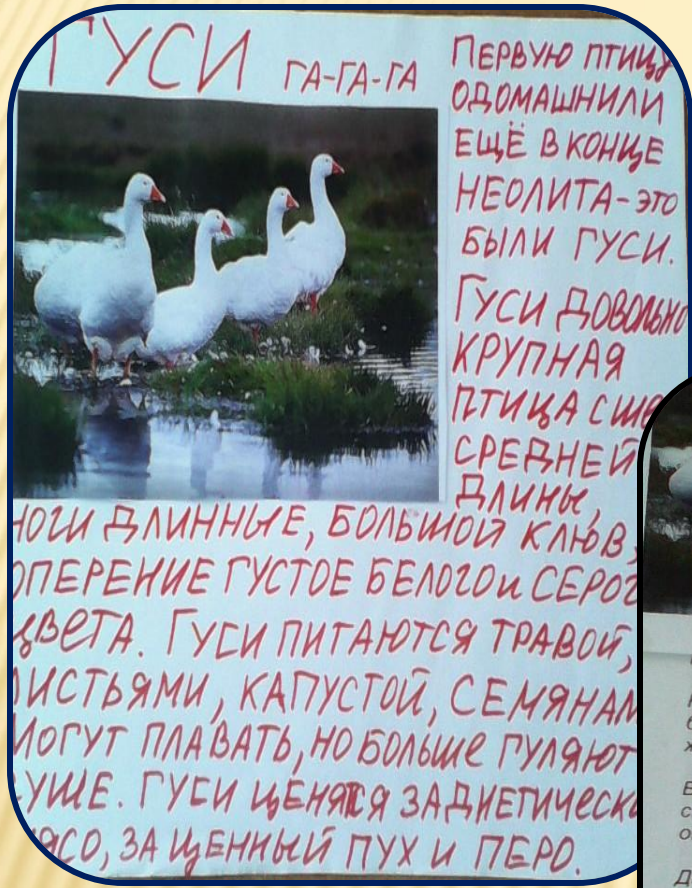 ГУСИ ГА-ГА-ГА
ПЕРВУЮ ПТИЦУ
ОДОМАШНИЛИ
ЕЩЁ В КОНЦЕ
НЕОЛИТА-ЭТО
БЫЛИ ГУСИ.
ГУСИ ДОВОЛЬНО
КРУПНАЯ
ПТИЦА С ШЕ
СРЕДНЕЙ
ДЛИНЫ,
НОГИ ДЛИННЫЕ, БОЛЬШОЙ КЛЮВ,
ОПЕРЕНИЕ ГУСТОЕ БЕЛОГО и СЕРОГ
ЦВЕТА. ГУСИ ПИТАЮТСЯ ТРАВОЙ,
ЛИСТЬЯМИ, КАПУСТОЙ, СЕМЯНАМ
МОГУТ ПЛАВАТЬ, НО БОЛЬШЕ ГУЛЯЮТ
СУШЕ. ГУСИ ЦЕНЯТСЯ ЗА ДИЕТИЧЕСКО
МЯСО, ЗА ЦЕННЫЙ ПУХ И ПЕРО.